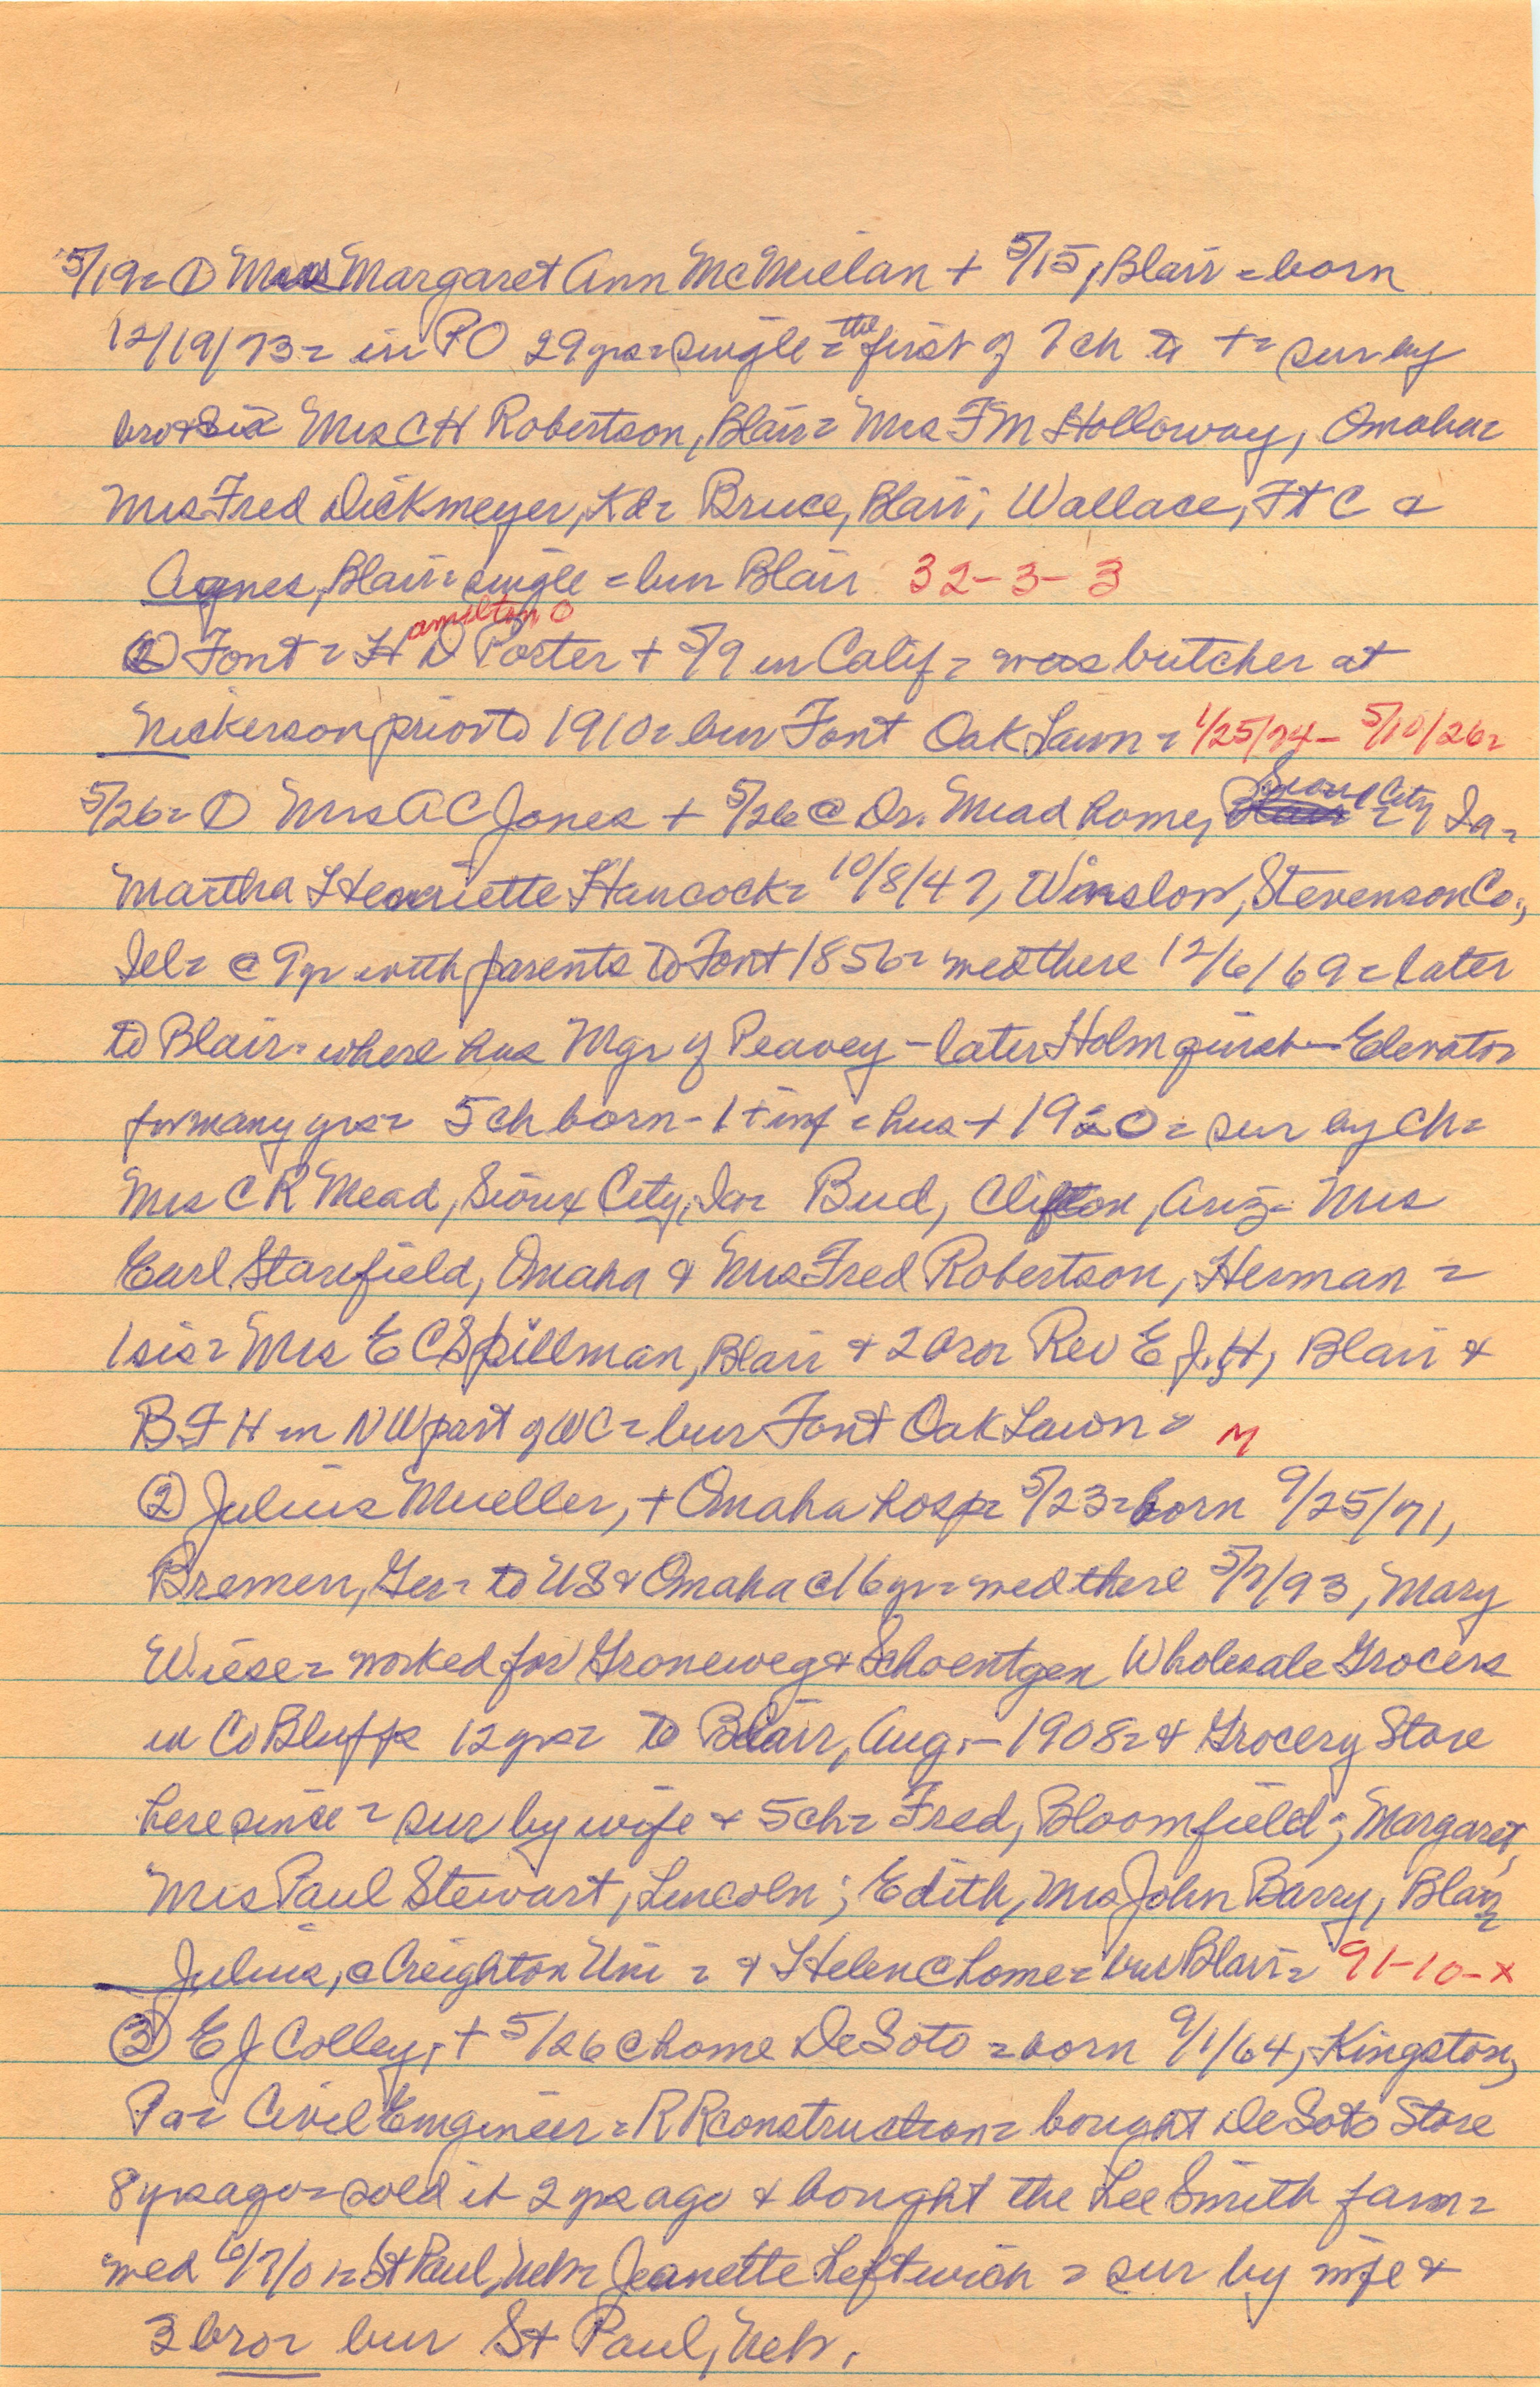 5/19= ① Miss Margaret Ann McMillan + 5/15, Blair = born
12/19/73= in PO 29 yrs= single = the first of 7 ch to += sur by
bro+sis Mrs CH Robertson, Blair= Mrs FM Holloway, Omaha=
Mrs Fred Dickmeyer, Kd= Bruce, Blair; Wallace, Ft C &
Agnes, Blair= single = bur Blair 32-3-3
amilton O
② Font= H D Porter + 5/9 in Calif= was butcher at
Nickerson prior to 1910= bur Font Oak Lawn = 1/25/74- 5/10/26=
5/26= ① Mrs AC Jones + 5/26 @ Dr. Mead home, Sioux City Ia=
Martha Henriette Hancock= 10/8/47, Winslow, Stevenson Co.,
Ill= @ 9yr with parents to Font 1856= med there 12/6/69= later
to Blair= where hus Mgr of Peavey - later Holmquist - Elevator
for many yrs= 5 ch born - 1 + inf = hus + 1920= sur by ch=
Mrs C R Mead, Sioux City, Ia= Bud, Clifton, Ariz= Mrs
Earl Starefield, Omaha & Mrs Fred Robertson, Herman =
1 sis= Mrs E C Spillman, Blair & 2 bro= Rev E J. H, Blair &
B F H in NW part of WC= bur Font Oak Lawn= M
② Julius Mueller, + Omaha hosp= 5/23= born 9/25/71,
Bremen, Ger= to US & Omaha @ 16 yr= med there 5/7/93, Mary
Wiese= worked for Groneweg & Schoentgen Wholesale Grocers
in Co Bluffs 12 yrs= to Blair, Aug.- 1908= & Grocery Store
here since = sur by wife & 5 ch= Fred, Bloomfield; Margaret,
Mrs Paul Stewart, Lincoln; Edith, Mrs John Barry, Blair=
Julius, @ Creighton Uni = & Helen @ home= bur Blair= 91-10-x
③ E J Colley, + 5/26 @ home DeSoto = born 9/1/64, Kingston,
Pa= Civil Emgineer = R R construction= bought DeSoto Store
8 yrs ago= sold it 2 yrs ago & bought the Lee Smith farm=
med 6/7/01= St Paul, Neb= Jeanette Leftwich = sur by wife &
3 bro= bur St Paul, Neb.